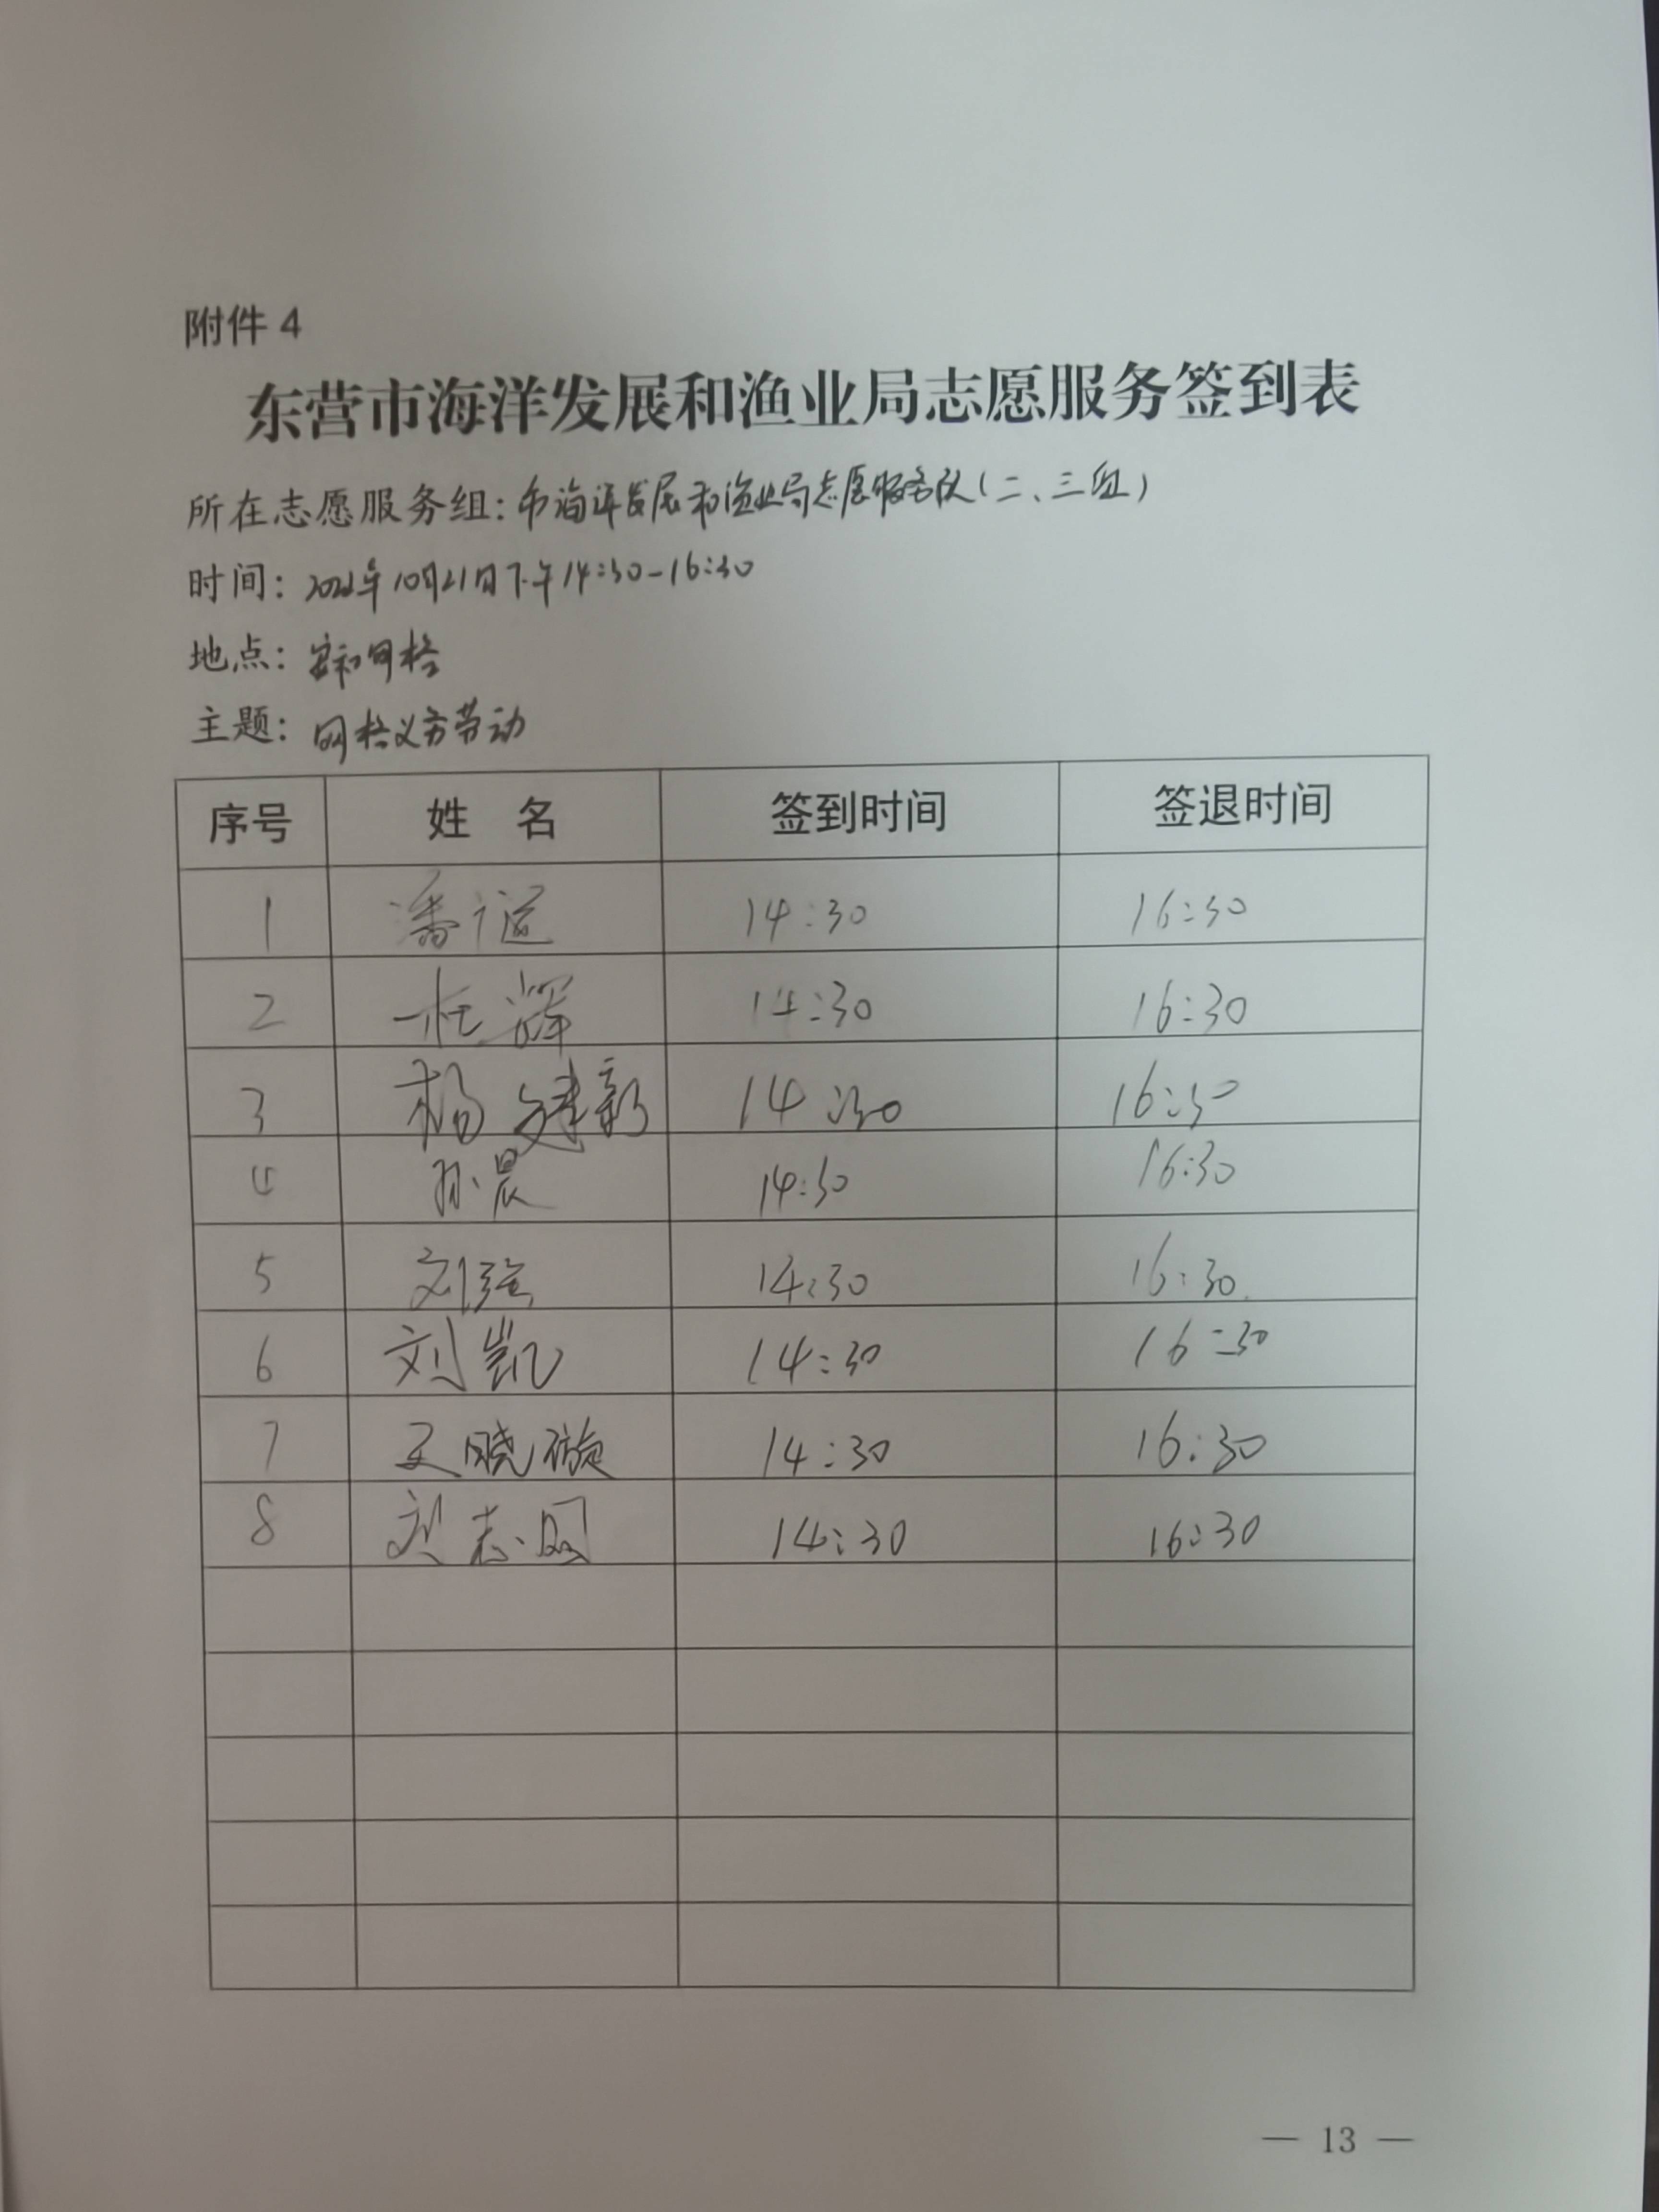 附件 4
东营市海洋发展和渔业局志愿服务签到表
所在志愿服务组：市海洋发展和渔业局志愿服务队（二、三组）
时间：2022年10月21日下午14:30-16:30
地点：安和网格
主题：网格义务劳动
序号 姓 名 签到时间 签退时间
1 潘 14:30 16:30
2 杜辉 14:30 16:30
3 杨建新 14:30 16:30
4 孙晨 14:30 16:30
5 刘强 14:30 16:30
6 刘凯 14:30 16:30
7 王晓璇 14:30 16:30
8 刘志国 14:30 16:30
— 13 —